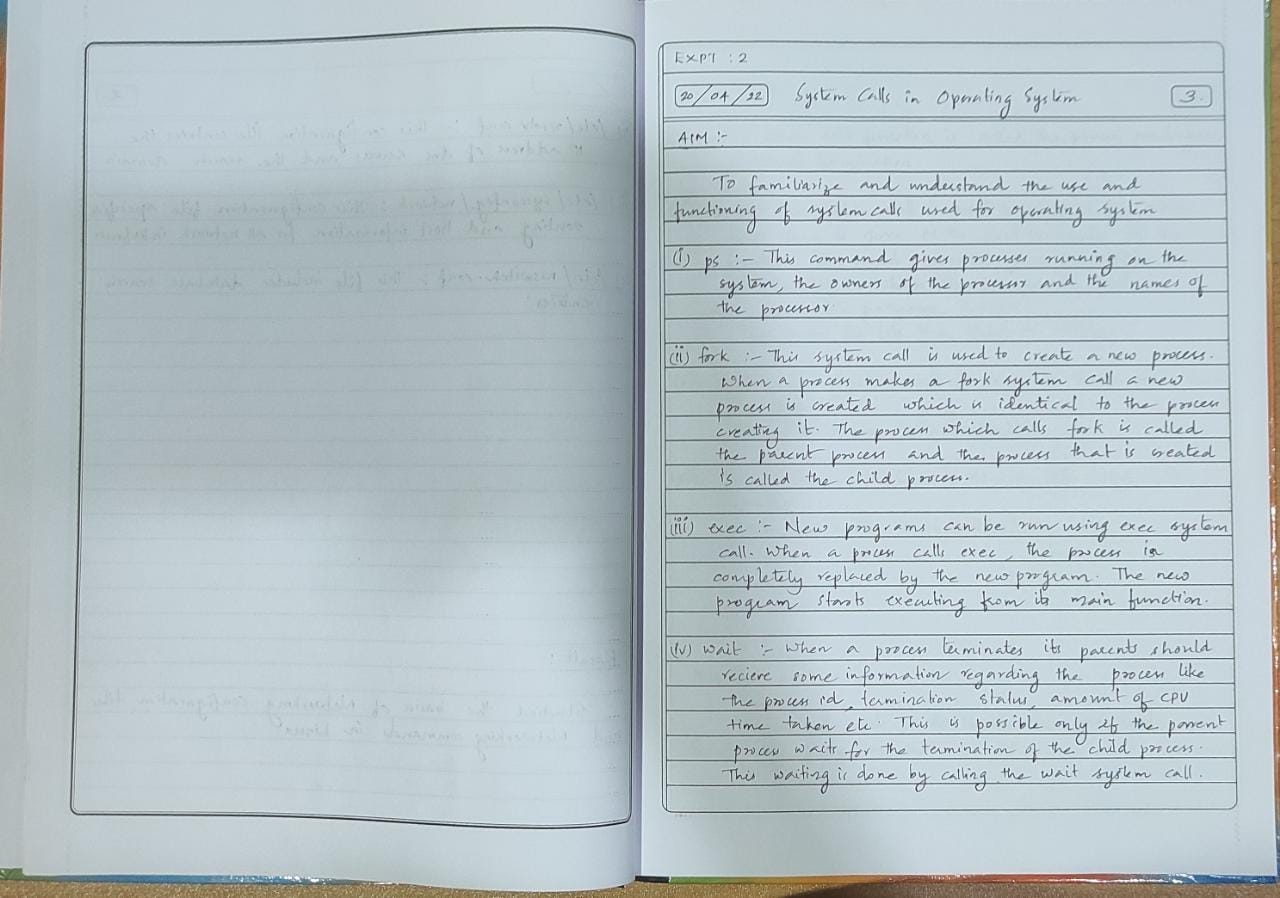 EXPT : 2
20/04/22 System Calls in Operating System 3.
AIM :-
To familiarize and understand the use and
functioning of system calls used for operating system
(i) ps :- This command gives processes running on the
system, the owners of the processor and the names of
the processor
(ii) fork :- This system call is used to create a new process.
When a process makes a fork system call a new
process is created which is identical to the process
creating it. The process which calls fork is called
the parent process and the process that is created
is called the child process.
(iii) exec :- New programs can be run using exec system
call. When a process calls exec, the process is
completely replaced by the new program. The new
program starts executing from its main function.
(iv) wait :- When a process terminates its parents should
recieve some information regarding the process like
the process id, termination status, amount of CPU
time taken etc. This is possible only if the parent
process waits for the termination of the child process.
This waiting is done by calling the wait system call.